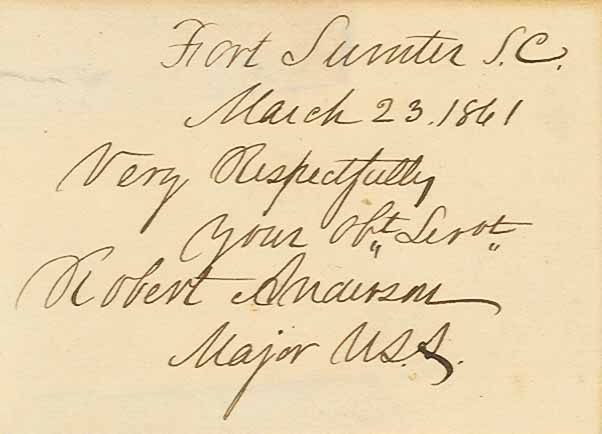 Fort Sumter S.C.
March 23. 1861
Very Respectfully
Your Obt Servt
Robert Anderson
Major U.S.A.